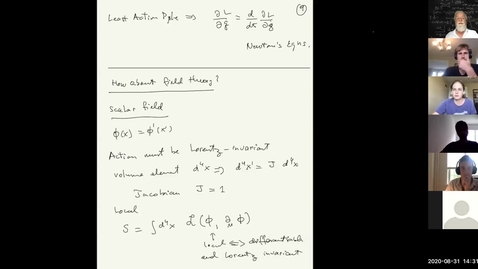 Least Action Pple ⇒ ∂L/∂q = d/dt ∂L/∂q̇
Newton's Eqns.
How about field theory?
Scalar field
ϕ(x) = ϕ'(x')
Action must be Lorentz-invariant
volume element d⁴x ⇒ d⁴x' = J d⁴x
Jacobian J = 1
Local
S = ∫d⁴x ℒ(ϕ, ∂μϕ)
local ⇔ differentiable
and Lorentz invariant
2020-08-31 14:31